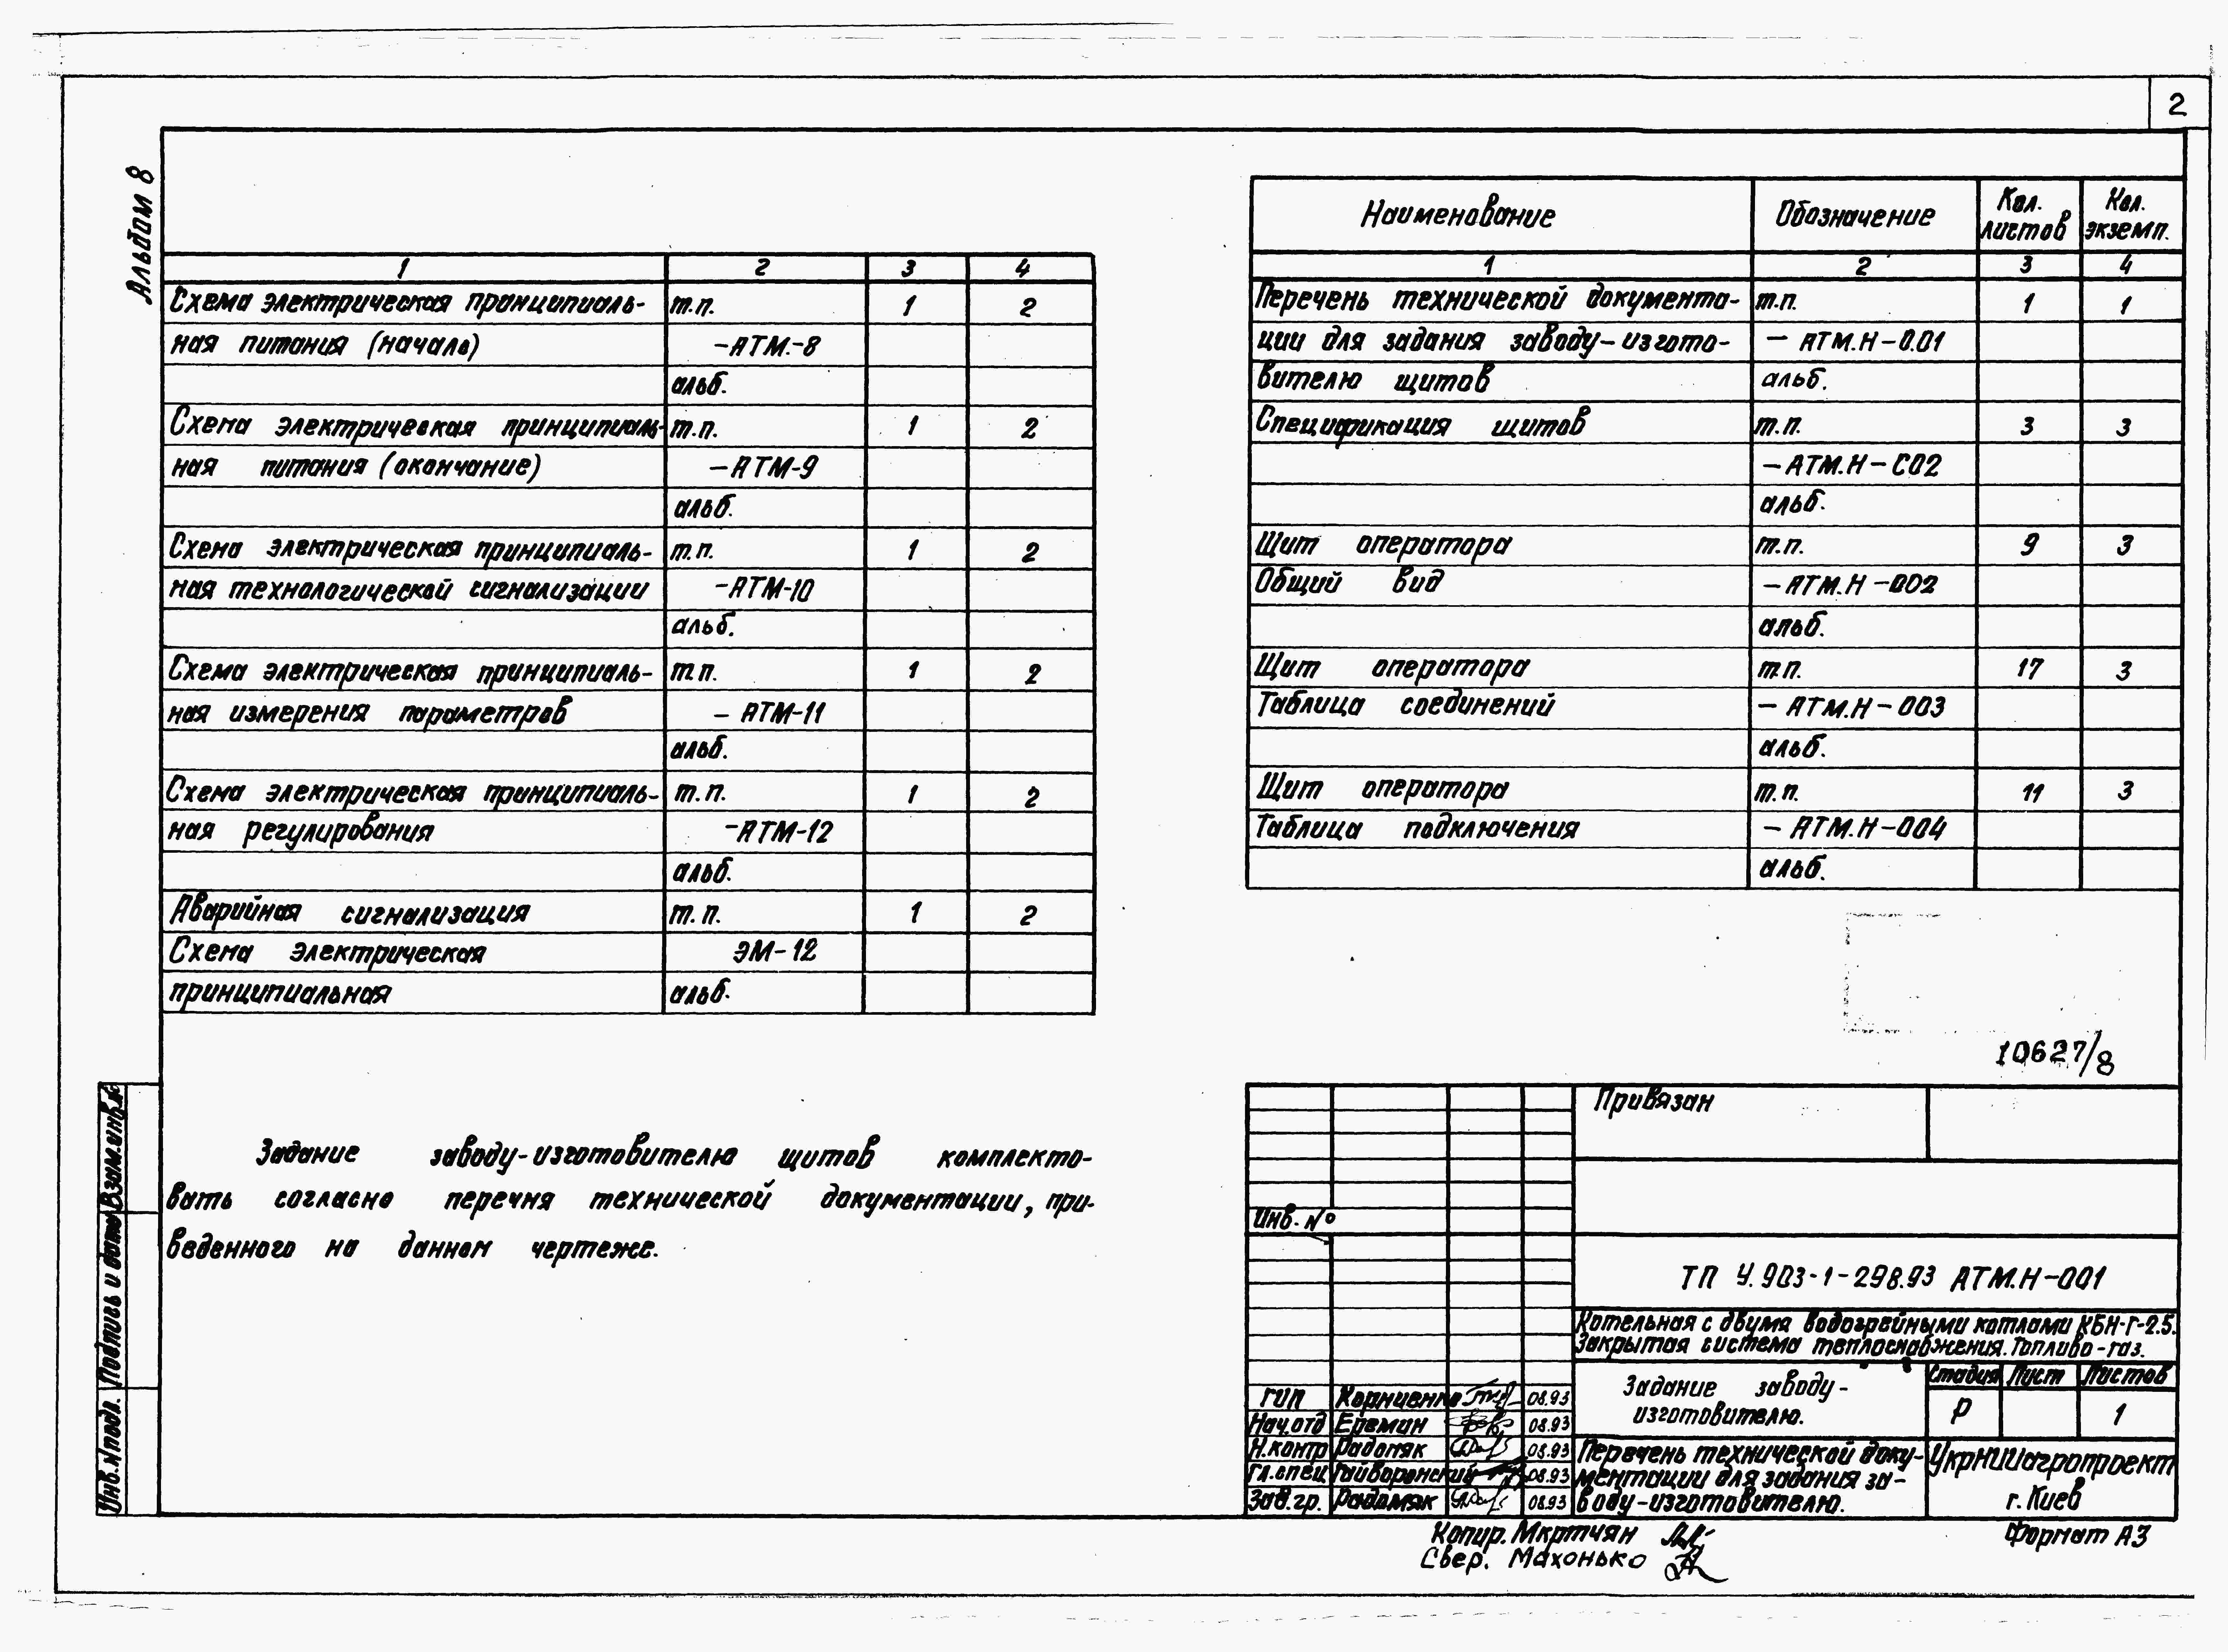 2
Альбом 8
Наименование | Обозначение | Кол. листов | Кол. экземп.
1 | 2 | 3 | 4
Перечень технической документа- | т.п. | 1 | 1
ции для задания заводу-изгото- | – АТМ.Н-0.01
вителю щитов | альб.
Спецификация щитов | т.п. | 3 | 3
– АТМ.Н-С02
альб.
Щит оператора | т.п. | 9 | 3
Общий вид | – АТМ.Н-002
альб.
Щит оператора | т.п. | 17 | 3
Таблица соединений | – АТМ.Н-003
альб.
Щит оператора | т.п. | 11 | 3
Таблица подключения | – АТМ.Н-004
альб.
1 | 2 | 3 | 4
Схема электрическая принципиаль- | т.п. | 1 | 2
ная питания (начало) | –АТМ.-8
альб.
Схема электрическая принципиаль- | т.п. | 1 | 2
ная питания (окончание) | –АТМ-9
альб.
Схема электрическая принципиаль- | т.п. | 1 | 2
ная технологической сигнализации | –АТМ-10
альб.
Схема электрическая принципиаль- | т.п. | 1 | 2
ная измерения параметров | – АТМ-11
альб.
Схема электрическая принципиаль- | т.п. | 1 | 2
ная регулирования | –АТМ-12
альб.
Аварийная сигнализация | т.п. | 1 | 2
Схема электрическая | ЭМ-12
принципиальная | альб.
Задание заводу-изготовителю щитов комплекто-
вать согласно перечня технической документации, при-
веденного на данном чертеже.
10627/8
Привязан
Инв. №
ТП У.903-1-298.93 АТМ.Н-001
Котельная с двумя водогрейными котлами КБН-Г-2.5.
Закрытая система теплоснабжения. Топливо-газ.
Задание заводу-
изготовителю.
Стадия | Лист | Листов
Р | 1
ГИП | Корниенко | 08.93
Нач.отд | Еремин | 08.93
Н.контр | Радомяк | 08.93
Гл.спец | Гайворонский | 08.93
Зав.гр. | Радомяк | 08.93
Перечень технической доку-
ментации для задания за-
воду-изготовителю.
УкрНИИагропроект
г. Киев
Копир. Мкртчян
Свер. Махонько
Формат А3
Взам.инв.№
Подпись и дата
Инв.№подл.